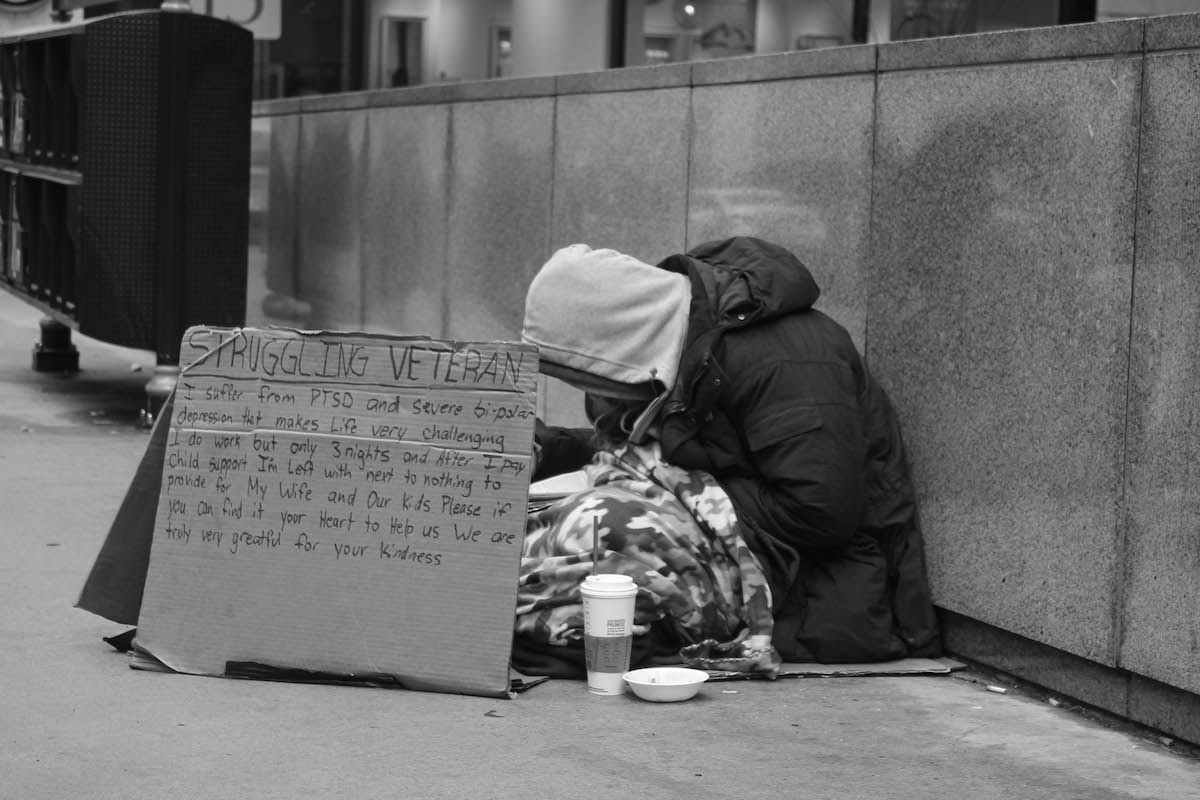 STRUGGLING VETERAN
I suffer from PTSD and severe bi-polar
depression that makes Life very challenging
I do work but only 3 nights and After I pay
Child support I'm Left with next to nothing to
provide for My Wife and Our Kids Please if
you can find it your Heart to Help us We are
truly very greatful for your Kindness